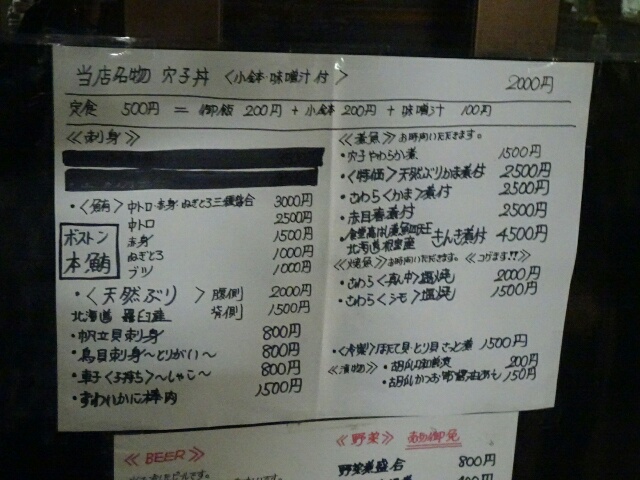 当店名物 穴子丼 <小鉢・味噌汁付> 2000円
定食 500円 = 御飯 200円 + 小鉢 200円 + 味噌汁 100円
≪刺身≫
・<鮪> 中トロ・赤身・ねぎとろ三種盛合 3000円
中トロ 2500円
赤身 1500円
ねぎとろ 1000円
ブツ 1000円
ボストン
本鮪
・<天然ぶり> 腹側 2000円
北海道 羅臼産 背側 1500円
・帆立貝刺身 800円
・鳥貝刺身〜とりがい〜 800円
・車子<子持ち>〜しゃこ〜 800円
・ずわいかに棒肉 1500円
≪煮魚≫ お時間いただきます。
・穴子やわらか煮 1500円
・<特価>天然ぶりかま煮付 2500円
・さわら<かま>煮付 2500円
・赤目春煮付 2500円
・食堂高はし煮魚四天王
北海道根室産 きんき煮付 4500円
≪焼魚≫ お時間いただきます。 ≪コゲます!!≫
・さわら<真中>塩焼 2000円
・さわら<シモ>塩焼 1500円
・<冷製>ほたて貝・とり貝さっと煮 1500円
≪漬物≫ ・胡瓜 200円
・胡瓜かつお 醤油あえ 150円
≪BEER≫
≪野菜≫
野菜煮盛合 800円